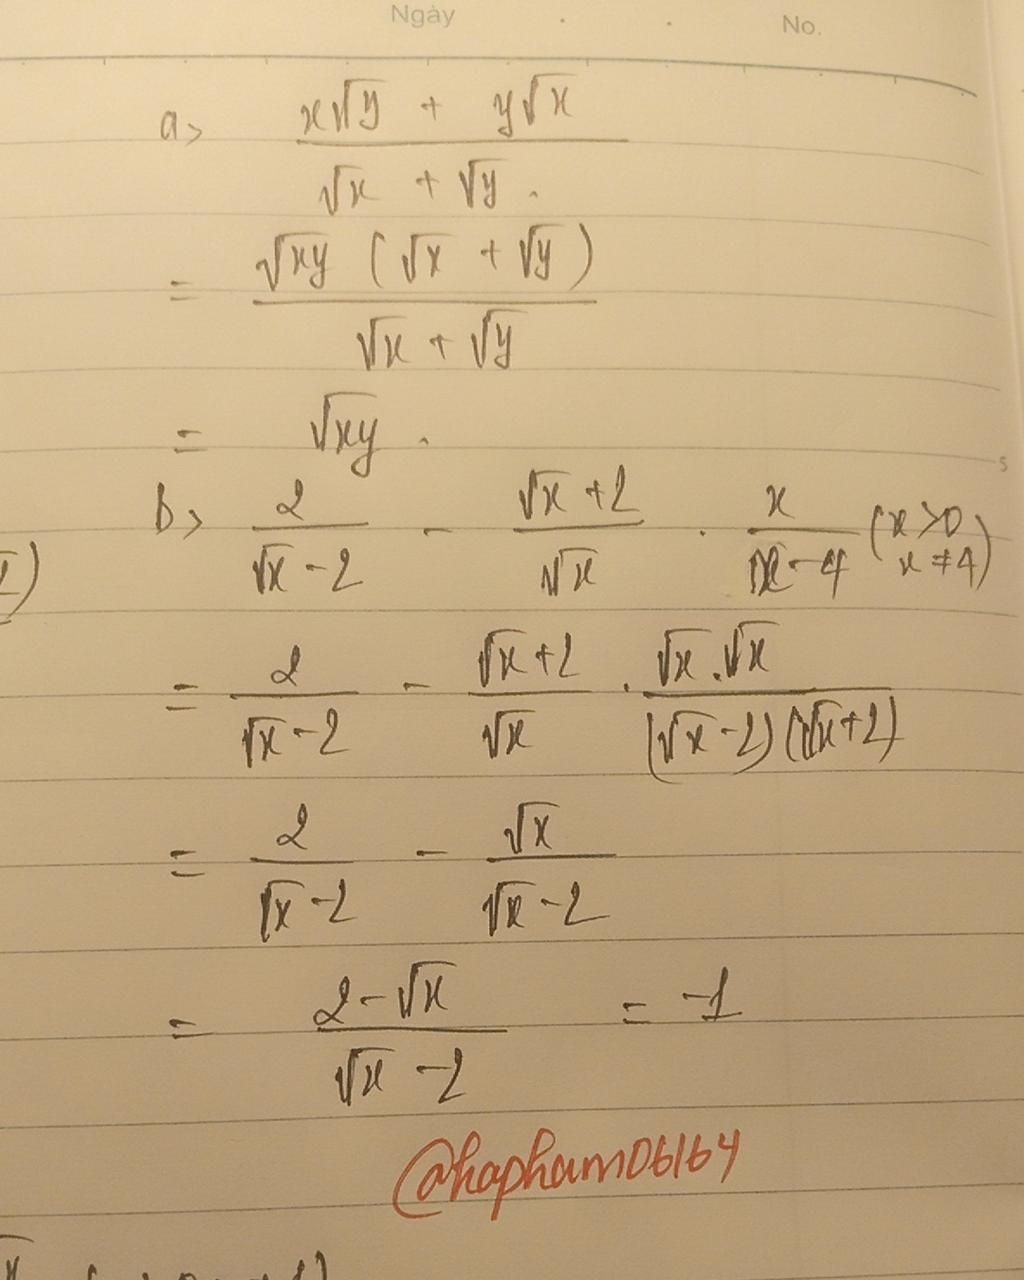 Ngày . . No.
a> (x√y + y√x) / (√x + √y) .
= (√xy (√x + √y)) / (√x + √y)
= √xy .
b> 2 / (√x - 2) - (√x + 2) / √x . x / (x - 4) (x > 0 x ≠ 4)
= 2 / (√x - 2) - (√x + 2) / √x . (√x . √x) / ((√x - 2)(√x + 2))
= 2 / (√x - 2) - √x / (√x - 2)
= (2 - √x) / (√x - 2) = -1
@hapham06164